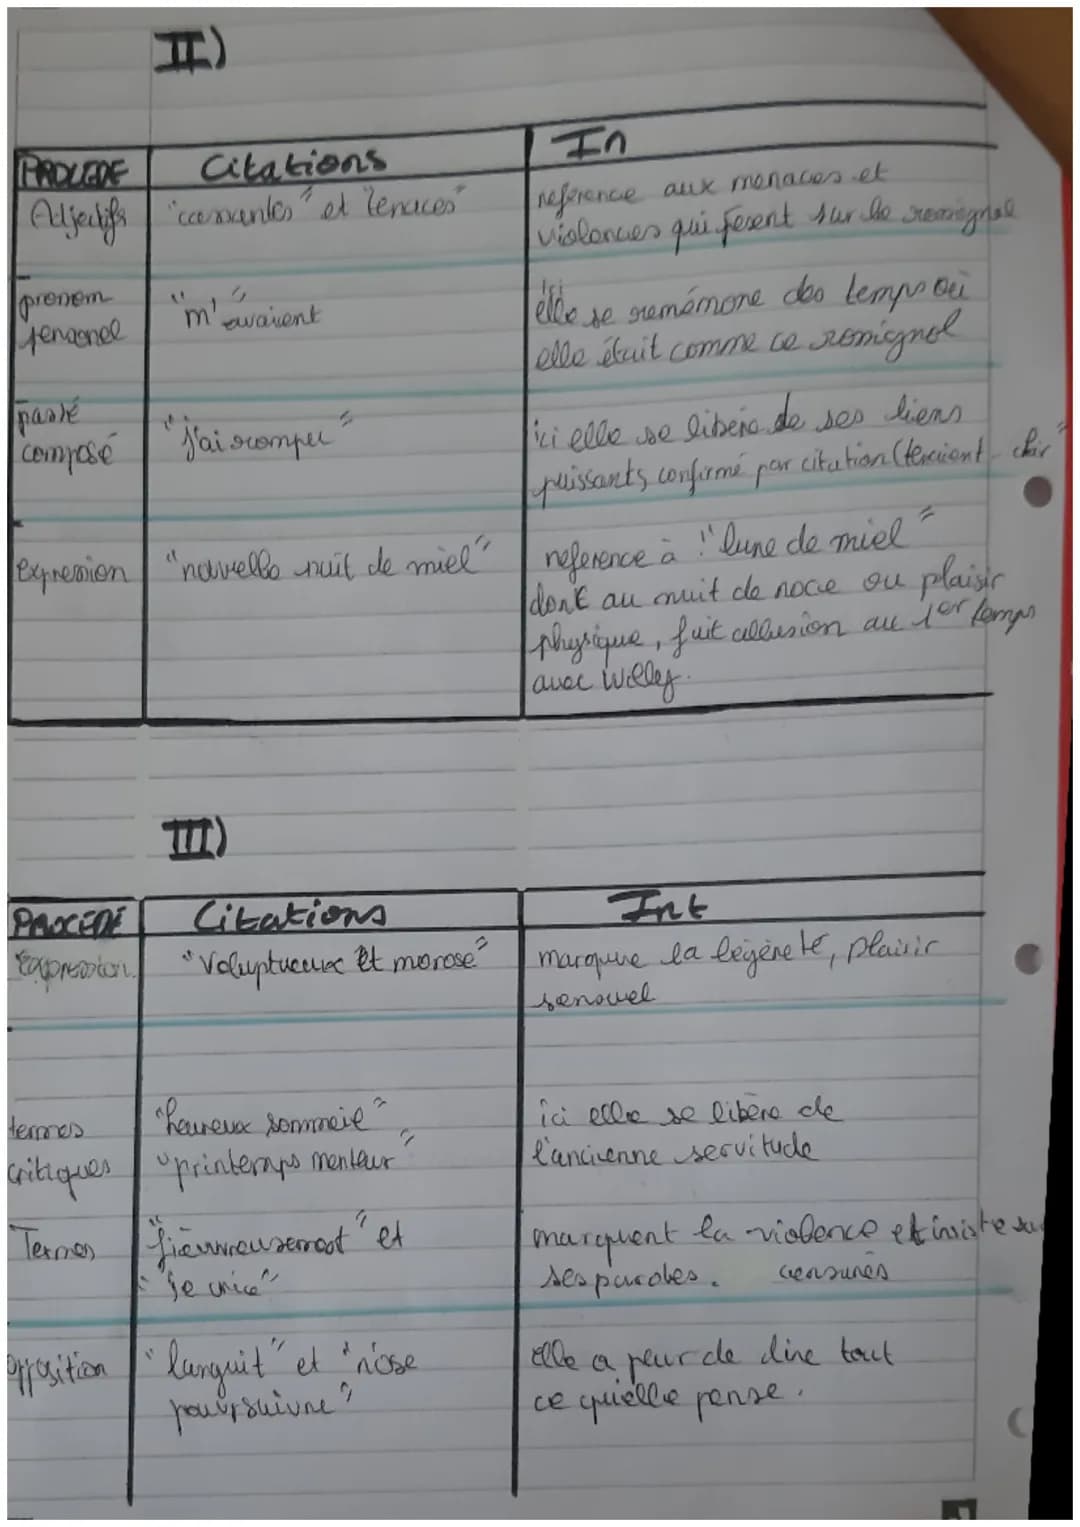 II)
PROCEDE Citations In
Adjectifs "cassantes" et "tenaces" reference aux menaces et
violences qui pesent sur le rossignol
pronom "m'avaient" ici elle se remémore des temps où
personel elle était comme ce rossignol
passé "j'ai rompu" ici elle se libère de ses liens
composé puissants, confirmé par citation (tenaient - chair"
expression "nouvelle nuit de miel" reference à "lune de miel"
dont au nuit de noce ou plaisir
physique, fait allusion au 1er temps
avec Willy.
III)
PROCEDE Citations Int
Expression. "Voluptueux et morose" marque la légèreté, plaisir
sensuel
termes "heureux sommeil" ici elle se libère de
critiques "printemps menteur" l'ancienne servitude
Termes "fièvreusement" et marquent la violence et insiste sur
"je crie" ses paroles. censurés
opposition "languit" et "n'ose elle a peur de dire tout
poursuivre" ce qu'elle pense.